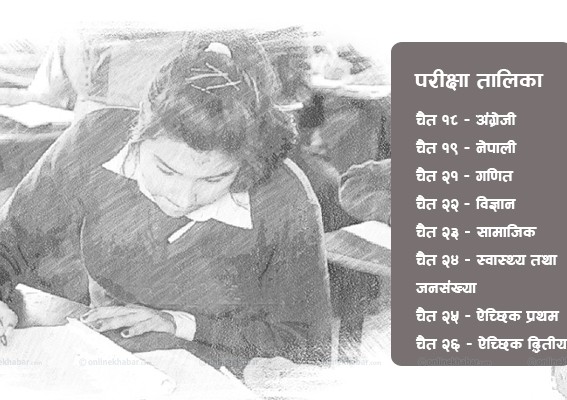 परीक्षा तालिका
चैत १८ - अंग्रेजी
चैत १९ - नेपाली
चैत २१ - गणित
चैत २२ - विज्ञान
चैत २३ - सामाजिक
चैत २४ - स्वास्थ्य तथा
जनसंख्या
चैत २५ - ऐच्छिक प्रथम
चैत २६ - ऐच्छिक द्वितीय
onlinekhabar.com